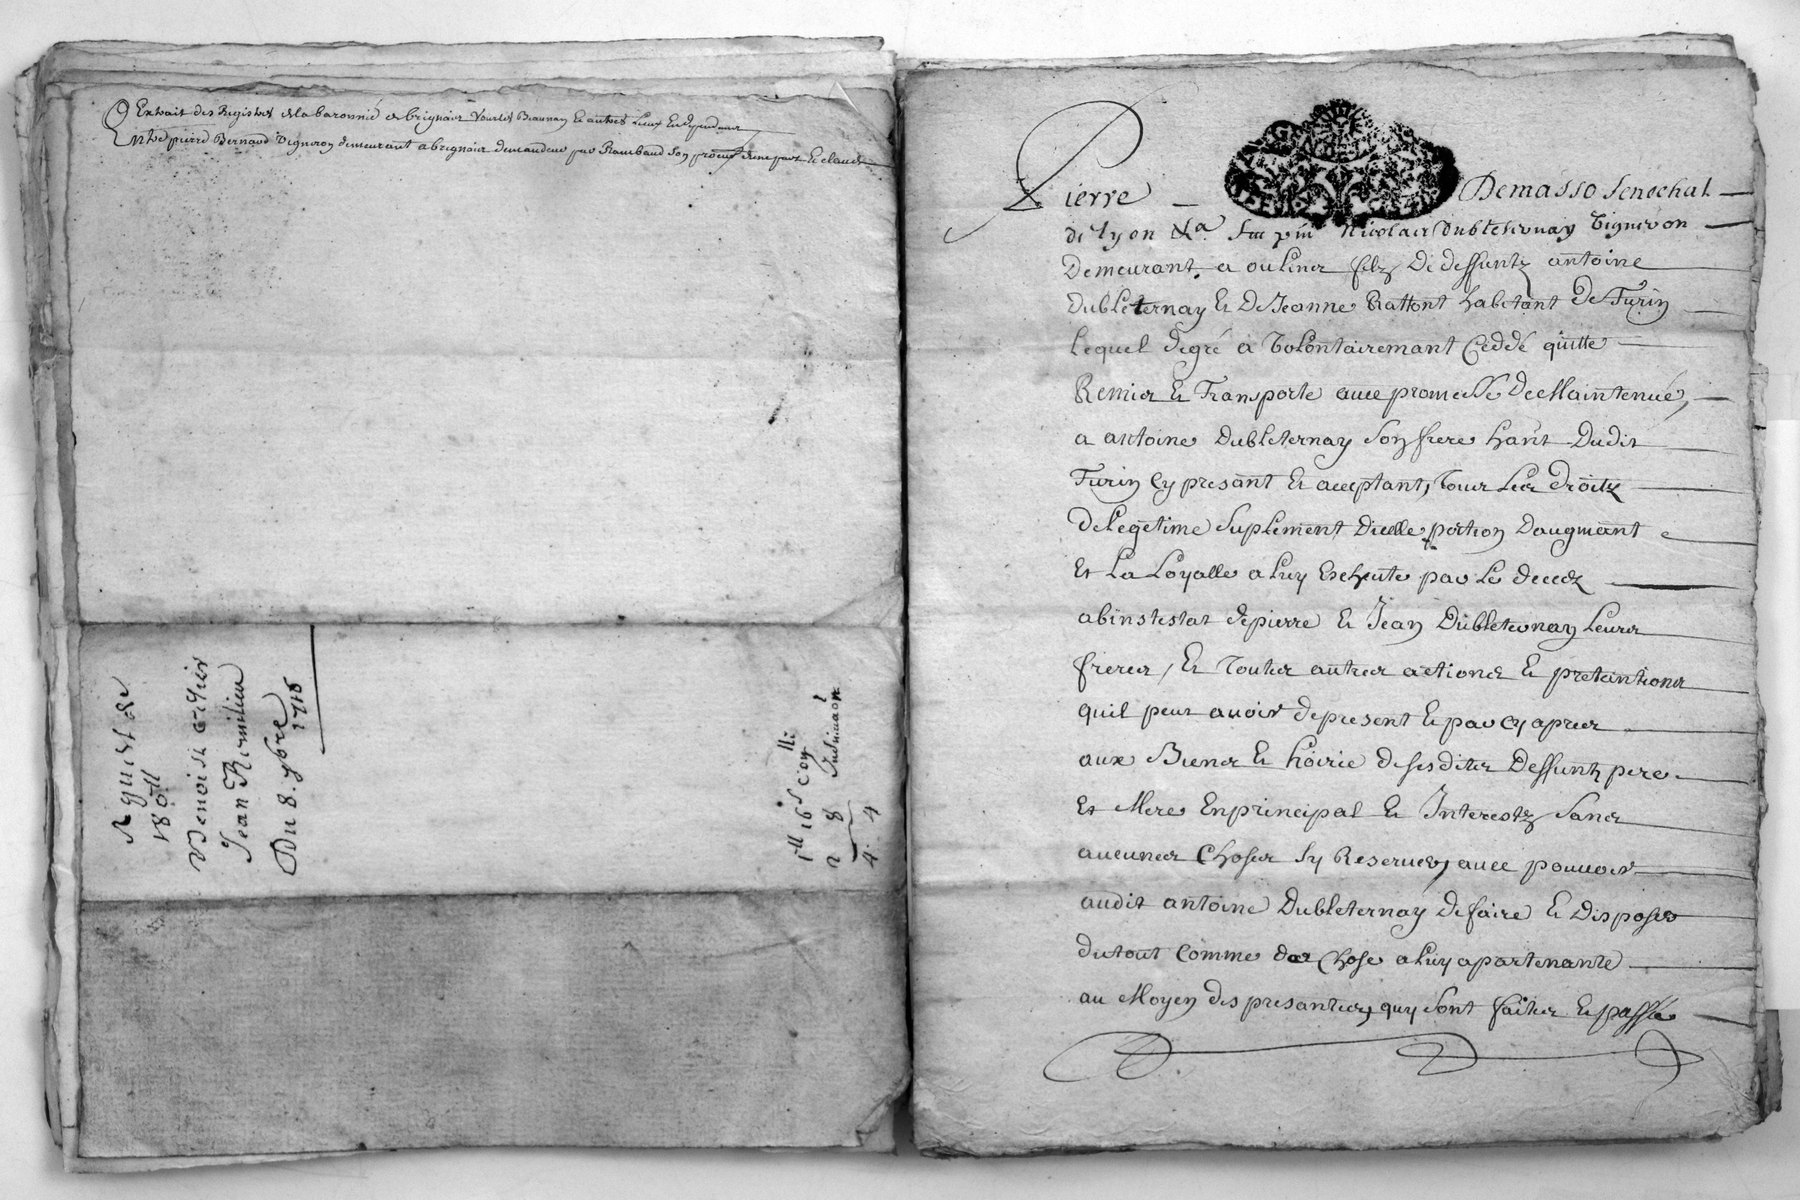 Extrait des Registres de la baronnie de brignais Vourles Beaunan Et autres Lieux En dependans
Entre pierre Bernard Vigneron demeurant a brignais demandeur par Rambaud Son procur d'une part Et claude
Requeste
Benoist
Jean
Du 8. 9bre 1716
4. 4
Pierre Demasso Senechal
de Lyon Nicolas Dubleternay Vigneron
Demeurant a oulines filz De deffuntz antoine
Dubleternay Et De Jeanne Rattont habitant De Turin
Lequel degré a Volontairemant Ceddé quitte
Remis Et Transporte avec promesse De Maintenue,
a antoine Dubleternay Son frere hant Dudit
Turin Cy presant Et acceptant, Tous Les droitz
De Legetime Suplement Dicelle portion Daugmant
Et La Loyalle a Luy Escheute par Le decedz
abinstestat de pierre Et Jean Dubleternay Leurs
freres, Et Toutes autres actions Et pretantions
quil peut avoir de present Et par cy apres
aux Biens Et hoirie de sesdites Deffuntz pere
Et Mere En principal Et Interestz Sans
aucunes Choses Sy Reserver, avec pouvoir
audit antoine Dubleternay de faire Et Disposer
du tout Comme de Chose a Luy apartenante
au Moyen des presantes, quy Sont faites Et passée